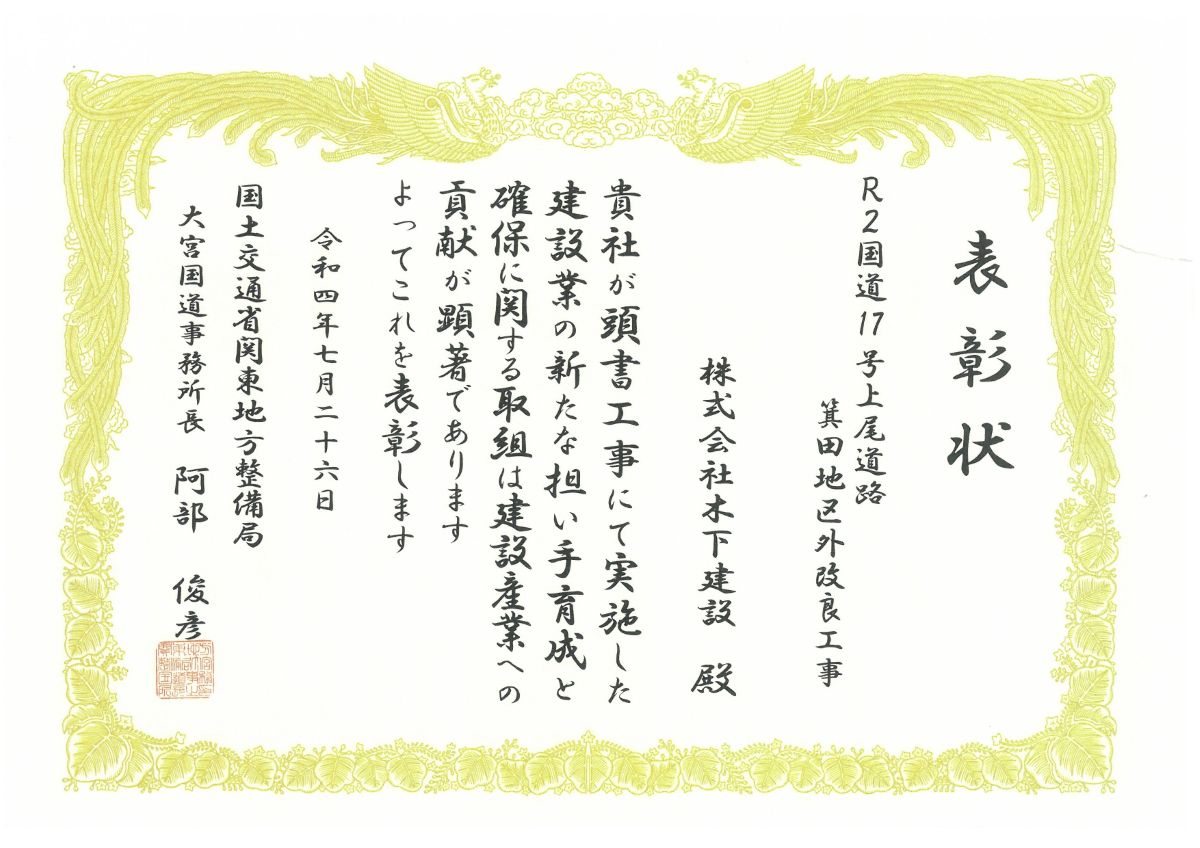 表彰状
R2国道17号上尾道路
箕田地区外改良工事
株式会社木下建設 殿
貴社が頭書工事にて実施した
建設業の新たな担い手育成と
確保に関する取組は建設産業への
貢献が顕著であります
よってこれを表彰します
令和四年七月二十六日
国土交通省関東地方整備局
大宮国道事務所長 阿部 俊彦